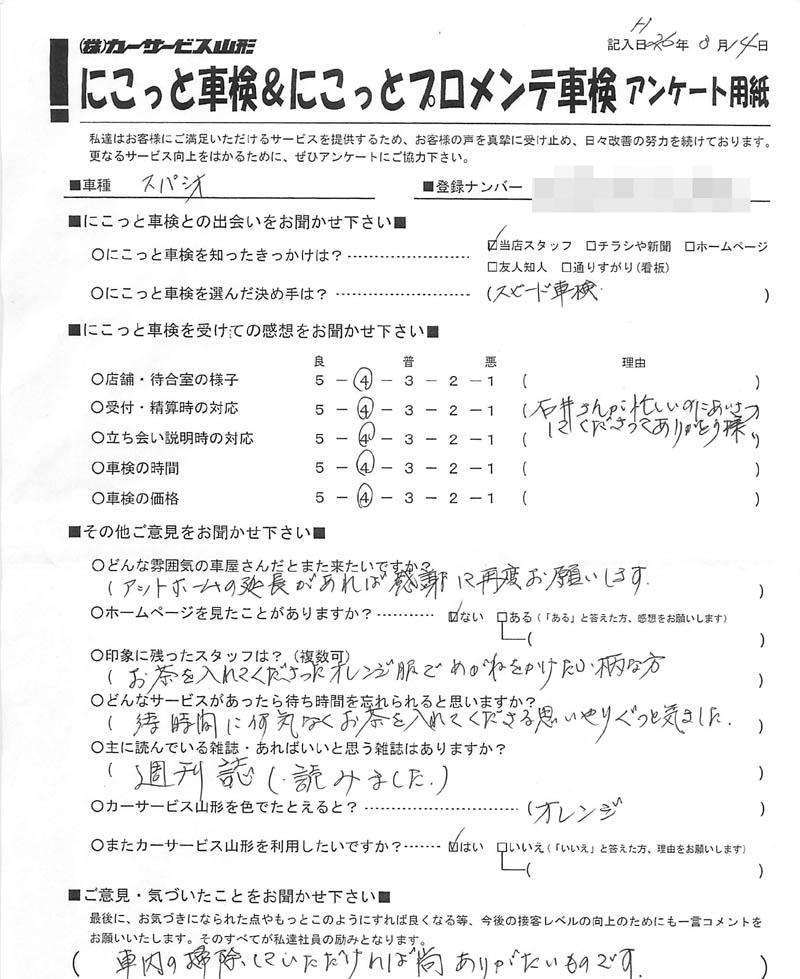 (株)カーサービス山形
記入日 H26年8月14日
にこっと車検&にこっとプロメンテ車検 アンケート用紙
私達はお客様にご満足いただけるサービスを提供するため、お客様の声を真摯に受け止め、日々改善の努力を続けております。
更なるサービス向上をはかるために、ぜひアンケートにご協力下さい。
■車種 スパシオ ■登録ナンバー
■にこっと車検との出会いをお聞かせ下さい■
○にこっと車検を知ったきっかけは? ☑当店スタッフ □チラシや新聞 □ホームページ
□友人知人 □通りすがり(看板)
○にこっと車検を選んだ決め手は? (スピード車検 )
■にこっと車検を受けての感想をお聞かせ下さい■
良 普 悪 理由
○店舗・待合室の様子 5-④-3-2-1 ( )
○受付・精算時の対応 5-④-3-2-1 (石井さんが忙しいのにあいさつ )
○立ち会い説明時の対応 5-④-3-2-1 ( してくださってありがとう様 )
○車検の時間 5-④-3-2-1 ( )
○車検の価格 5-④-3-2-1 ( )
■その他ご意見をお聞かせ下さい■
○どんな雰囲気の車屋さんだとまた来たいですか?
(アットホームの延長があれば感謝に再度お願いします. )
○ホームページを見たことがありますか? ☑ない □ある(「ある」と答えた方、感想をお願いします)
( )
○印象に残ったスタッフは?(複数可)
(お茶を入れてくださったオレンジ服でめがねをかけた小柄な方 )
○どんなサービスがあったら待ち時間を忘れられると思いますか?
(待時間に何気なくお茶を入れてくださる思いやりぐっと気ました. )
○主に読んでいる雑誌・あればいいと思う雑誌はありますか?
(週刊誌(・読みました.) )
○カーサービス山形を色でたとえると? (オレンジ )
○またカーサービス山形を利用したいですか? ☑はい □いいえ(「いいえ」と答えた方、理由をお願いします)
( )
■ご意見・気づいたことをお聞かせ下さい■
最後に、お気づきになられた点やもっとこのようにすれば良くなる等、今後の接客レベルの向上のためにも一言コメントを
お願いいたします。そのすべてが私達社員の励みとなります。
(車内の掃除していただければ尚ありがたいものです.)